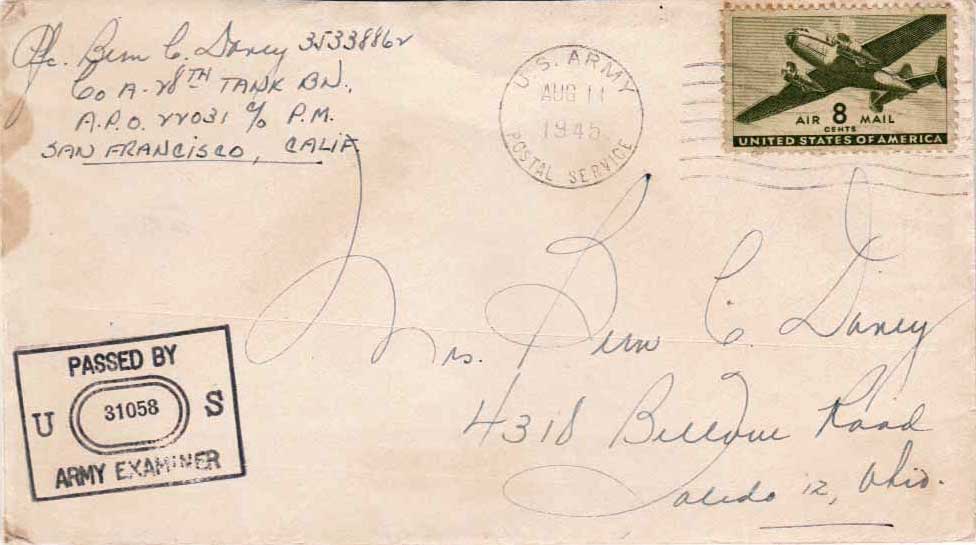 Pfc. Bern C. Daney 35338862
Co A - 28TH TANK BN.
A.P.O. 22031 c/o P.M.
SAN FRANCISCO, CALIF
U.S. ARMY
AUG 11
1945
POSTAL SERVICE
AIR 8 MAIL
CENTS
UNITED STATES OF AMERICA
Mrs. Bern C. Daney
4318 Bellvue Road
Toledo 12, Ohio.
PASSED BY
U 31058 S
ARMY EXAMINER